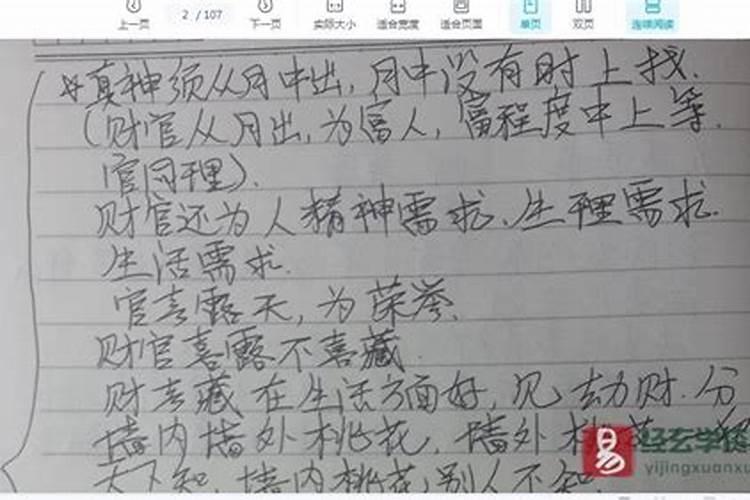 上一页 2 / 107 下一页 实际大小 适合宽度 适合页面 单页 双页 连续阅读
真神须从月中出,月中没有时上找.
(财官从月出,为富人,富程度中上等.
官同理).
财官还为人精神需求、生理需求.
生活需求.
官喜露天,为荣誉.
财官喜露不喜藏.
财喜藏在生活方面好,见劫财.分
墙内墙外桃花,墙外桃花
天下知,墙内桃花,别人不知
易 经玄学
yijingxuanxu